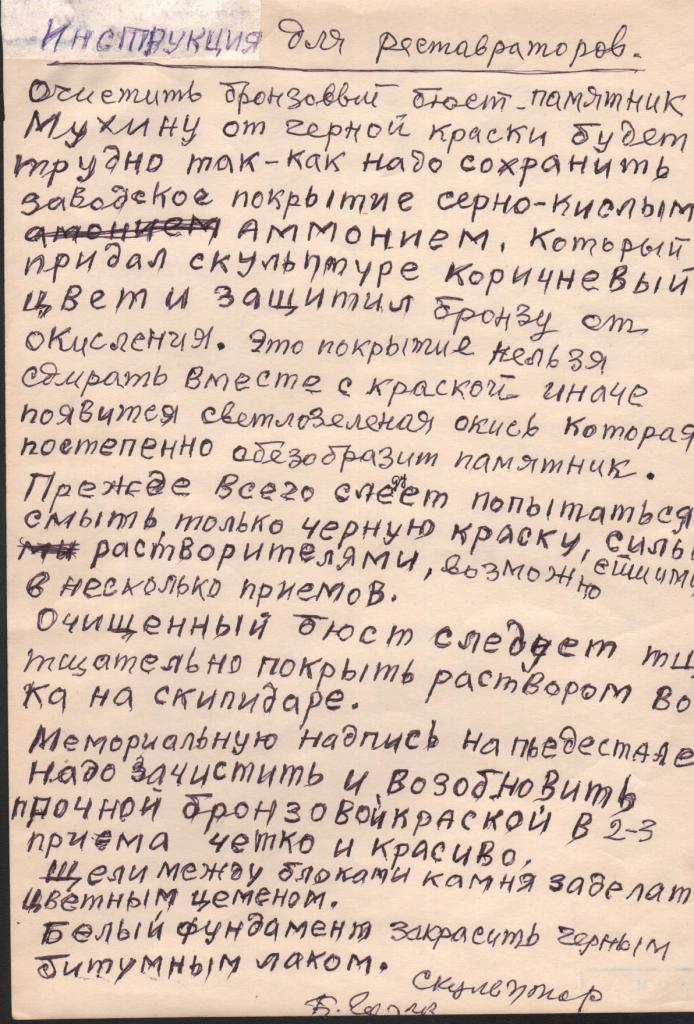 Инструкция для реставраторов.
Очистить бронзовый бюст-памятник
Мухину от черной краски будет
трудно так-как надо сохранить
заводское покрытие серно-кислым
амонием аммонием, который
придал скульптуре коричневый
цвет и защитил бронзу от
окисления. Это покрытие нельзя
сдирать вместе с краской иначе
появится светлозеленая окись которая
постепенно обезобразит памятник.
Прежде всего следует попытаться
смыть только черную краску, силь
ми растворителями, возможно
в несколько приемов.
Очищенный бюст следует тщ
тщательно покрыть раствором во
ка на скипидаре.
Мемориальную надпись на пьедестале
надо зачистить и возобновить
прочной бронзовой краской в 2-3
приема четко и красиво.
Щели между блоками камня заделат
цветным цеменом.
Белый фундамент закрасить черным
битумным лаком.
скульптор